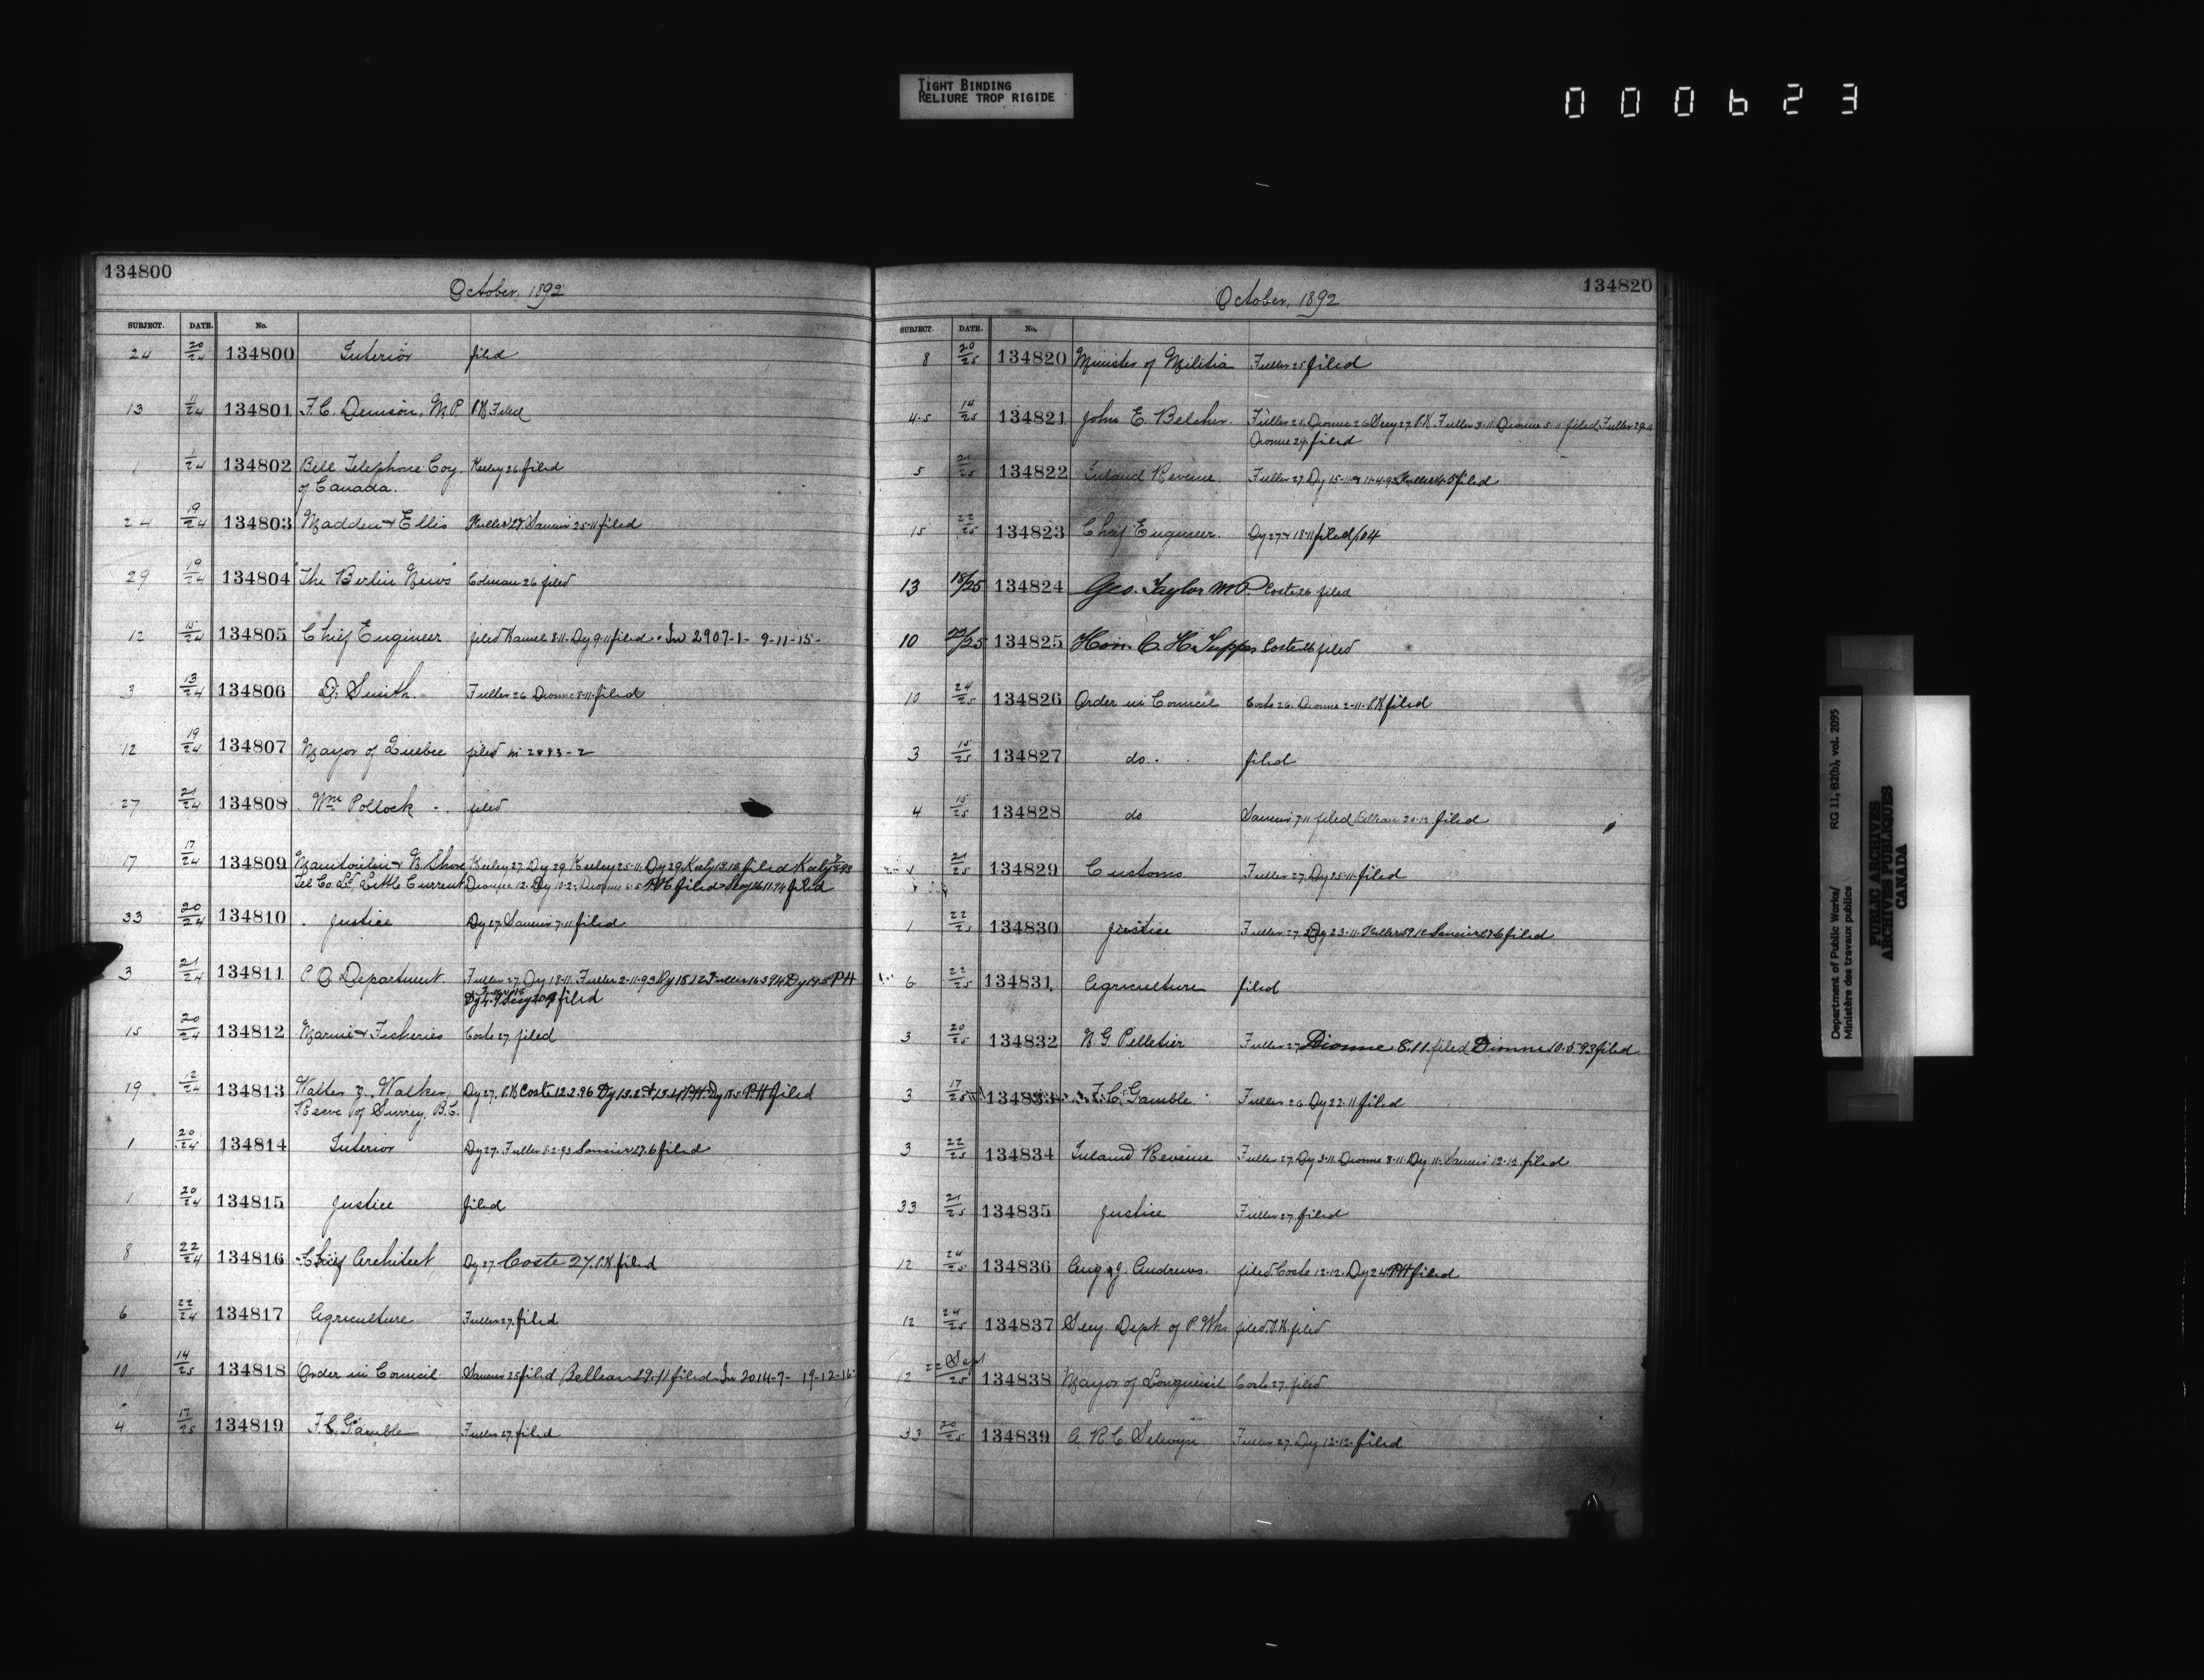 TIGHT BINDING
RELIURE TROP RIGIDE
000623
134800
October, 1892
SUBJECT. DATE. No.
24 20/24 134800 Interior filed
13 11/24 134801 F. C. Denison, M.P. P.H. Filed
1 1/24 134802 Bell Telephone Coy. Keeley 26 filed
of Canada.
24 19/24 134803 Madden & Ellis Fuller 27. 25-11 filed
29 19/24 134804 "The Berlin News" Colman 26 filed
12 15/24 134805 Chief Engineer filed 8-11. Dy 9-11 filed. In 2907-1- 9-11-15-
3 13/24 134806 D. Smith. Fuller 26 Dionne 8-11. filed
12 19/24 134807 Mayor of Quebec filed in 2883-2
27 21/24 134808 Wm Pollock filed
17 17/24 134809 Manitoulin & N. Shore Keeley 27. Dy 29. Keeley 25-11. Dy 29. filed
Tel Co. Ld, Little Current filed filed
33 20/24 134810 Justice Dy 27. 7-11 filed
3 21/24 134811 P O Department. Fuller 27. Dy 18-11. Fuller 2-11-93 Dy 18.12 Fuller 16.3.94 Dy 19.5 PH
filed
15 20/24 134812 Marine & Fisheries Coste 27 filed
19 12/24 134813 Walter J. Walker, Dy 27. P.H. Coste 12.2.96 P.H. filed
Reeve of Surrey, B.C.
1 20/24 134814 Interior Dy 27. Fuller 8-2-93 27.6 filed
1 20/24 134815 Justice filed
8 22/24 134816 Chief Architect Dy 27 Coste 27. P.H. filed
6 22/24 134817 Agriculture Fuller 27. filed
10 14/25 134818 Order in Council 25 filed Belleau 29.11 filed. In 2014-7- 19-12-16
4 17/25 134819 F. C. Gamble Fuller 27. filed
134820
October, 1892
SUBJECT. DATE. No.
8 20/25 134820 Minister of Militia Fuller 25 filed
4-5 14/25 134821 John E. Belcher. Fuller 25. Dionne 26 Secy 27. P.H. Fuller 3-11 Dionne 5-11 filed. Fuller 29-11
Dionne 29. filed
5 21/25 134822 Inland Revenue. Fuller 27. Dy 15-11 & 11-4-93 filed
15 22/25 134823 Chief Engineer. Dy 27 & 18-11 filed
13 18/25 134824 Geo. Taylor M.P. Coste 26 filed
10 22/25 134825 Hon. C. H. Tupper Coste 26 filed
10 24/25 134826 Order in Council Coste 26. Dionne 2-11. P.H. filed
3 15/25 134827 do. filed
4 15/25 134828 do 7-11 filed. Belleau 20-12. filed
21/25 134829 Customs Fuller 27. Dy 25-11. filed
1 22/25 134830 Justice Fuller 27. Dy 23-11. filed
6 22/25 134831 Agriculture filed
3 20/25 134832 N. G. Pelletier Fuller 27 Dionne 8.11. filed Dionne 10.5.93 filed
3 17/25 134833 F. C. Gamble. Fuller 26. Dy 22-11 filed
3 22/25 134834 Inland Revenue Fuller 27. Dy 3-11. Dionne 8-11. Dy 11. 12-12. filed
33 21/25 134835 Justice Fuller 27 filed
12 24/25 134836 Aug. J. Andrews. filed. Coste 12-12. Dy 24. P.H. filed
12 24/25 134837 Secy. Dept. of P. Wks. filed. P.H. filed
12 22 Sept/25 134838 Mayor of Longueuil Coste 27. filed
33 20/25 134839 A. R. C. Selwyn Fuller 27. Dy 12-12. filed
Department of Public Works/ RG 11, B2(b), vol. 2095
Ministère des travaux publics
PUBLIC ARCHIVES
ARCHIVES PUBLIQUES
CANADA